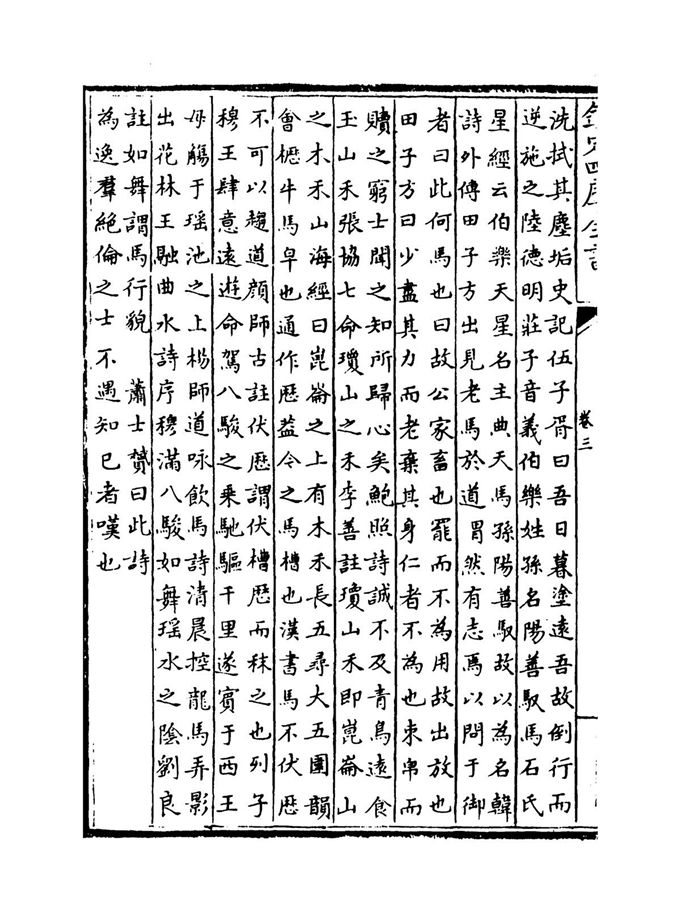 欽定四庫全書
卷三
洗拭其塵垢史記伍子胥曰吾日暮塗遠吾故倒行而
逆施之陸德明莊子音義伯樂姓孫名陽善馭馬石氏
星經云伯樂天星名主典天馬孫陽善馭故以為名韓
詩外傳田子方出見老馬於道喟然有志焉以問于御
者曰此何馬也曰故公家畜也罷而不為用故出放也
田子方曰少盡其力而老棄其身仁者不為也束帛而
贖之窮士聞之知所歸心矣鮑照詩誠不及青鳥遠食
玉山禾張協七命瓊山之禾李善註瓊山禾即崑崙山
之木禾山海經曰崑崙之上有木禾長五尋大五圍韻
會櫪牛馬皁也通作歴益今之馬槽也漢書馬不伏歴
不可以趨道顔師古註伏歴謂伏槽歴而秣之也列子
穆王肆意遠遊命駕八駿之乗馳驅千里遂賔于西王
母觴于瑶池之上楊師道咏飲馬詩清晨控龍馬弄影
出花林王融曲水詩序穆滿八駿如舞瑶水之陰劉良
註如舞謂馬行貌　蕭士贇曰此詩
為逸羣絶倫之士不遇知己者嘆也